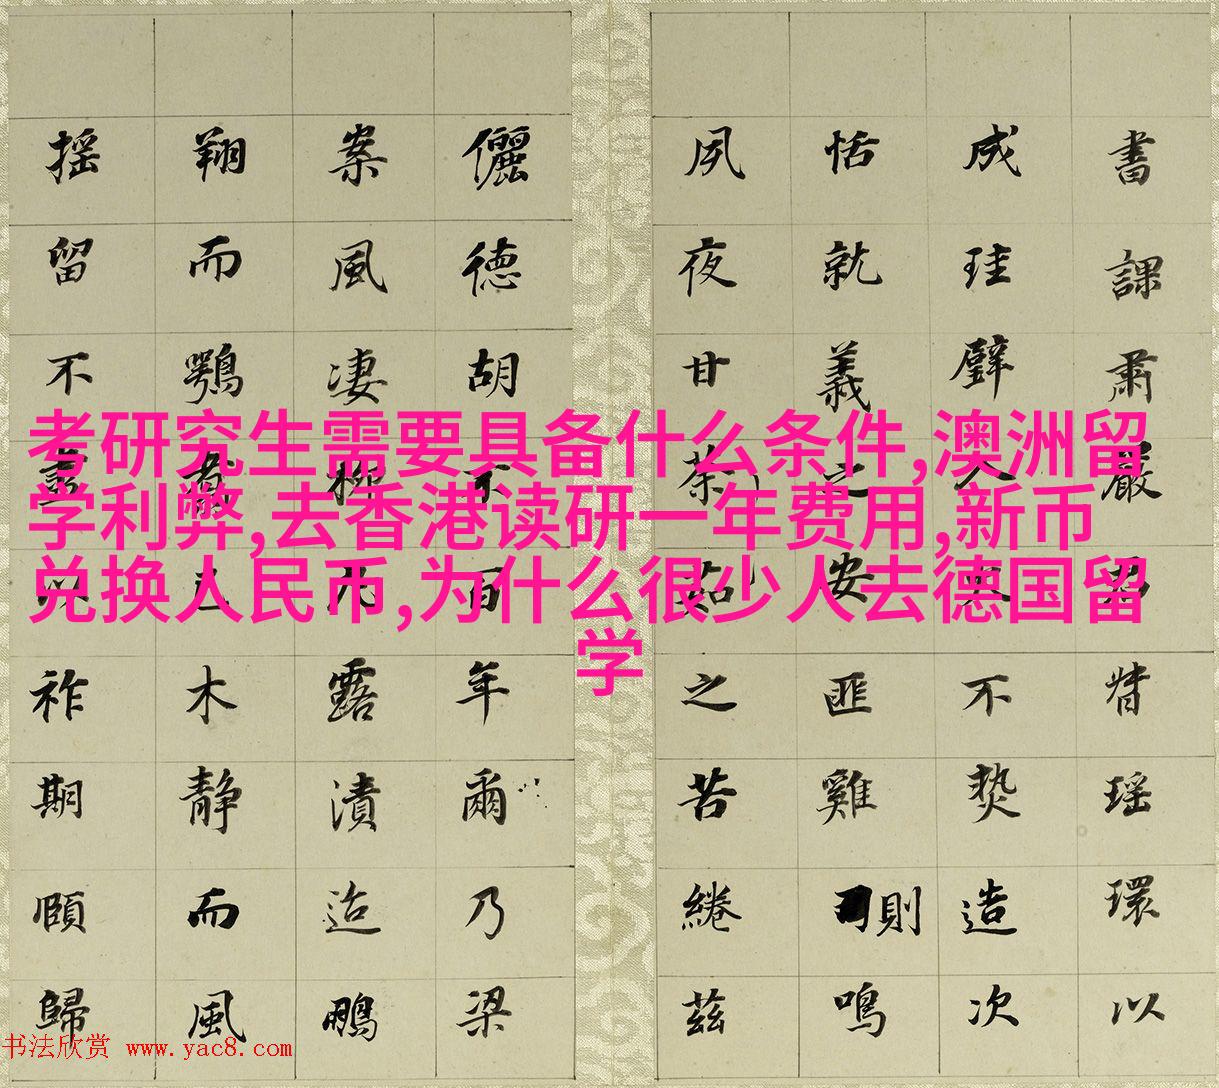 考研究生需要具备什么条件,澳洲留
学利弊,去香港读研一年费用,新币
兑换人民币,为什么很少人去德国留
学
書課肅嚴瑶環以
成珪璧人不贄造次
恬就義之安匪雞則鳴
夙夜甘荼茹之苦綣茲
儷德胡不百年爾乃梁
案風淒柳露漬迨鵬
翔而鶚木靜而風
摇留不以祚期頤歸
书法欣赏 www.yac8.com